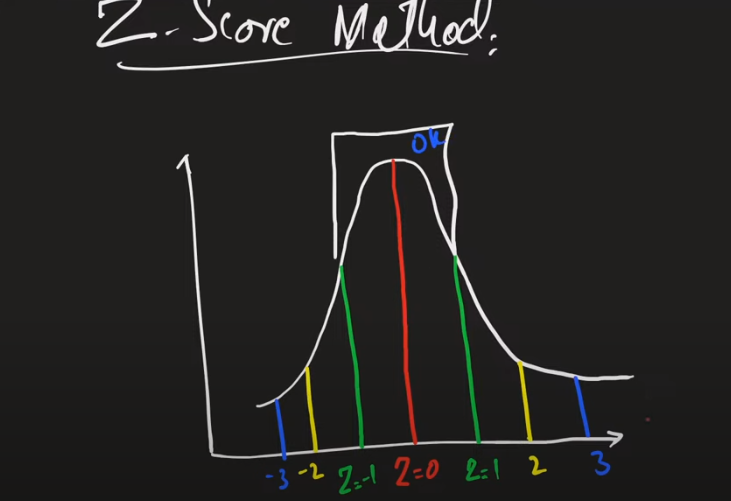 Z-Score Method:
OK
-3 -2 Z=-1 Z=0 Z=1 2 3